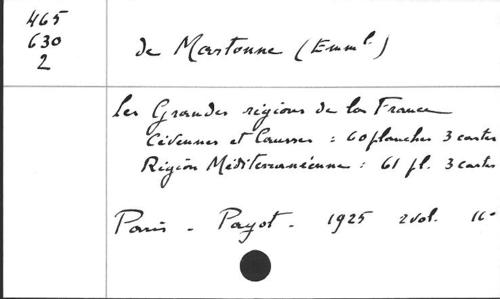 465
630
2
de Martonne (Emml.)
Les Grandes régions de la France
Cévennes et Causses : 60 planches 3 cartes
Région Méditerranéenne : 61 pl. 3 cartes
Paris - Payot - 1925 2 vol. 16°